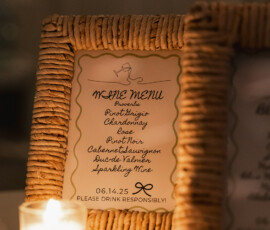 WINE MENU
Prosecco
Pinot Grigio
Chardonnay
Rose
Pinot Noir
Cabernet Sauvignon
Duc de Valmer
Sparkling Wine
06.14.25
PLEASE DRINK RESPONSIBLY!